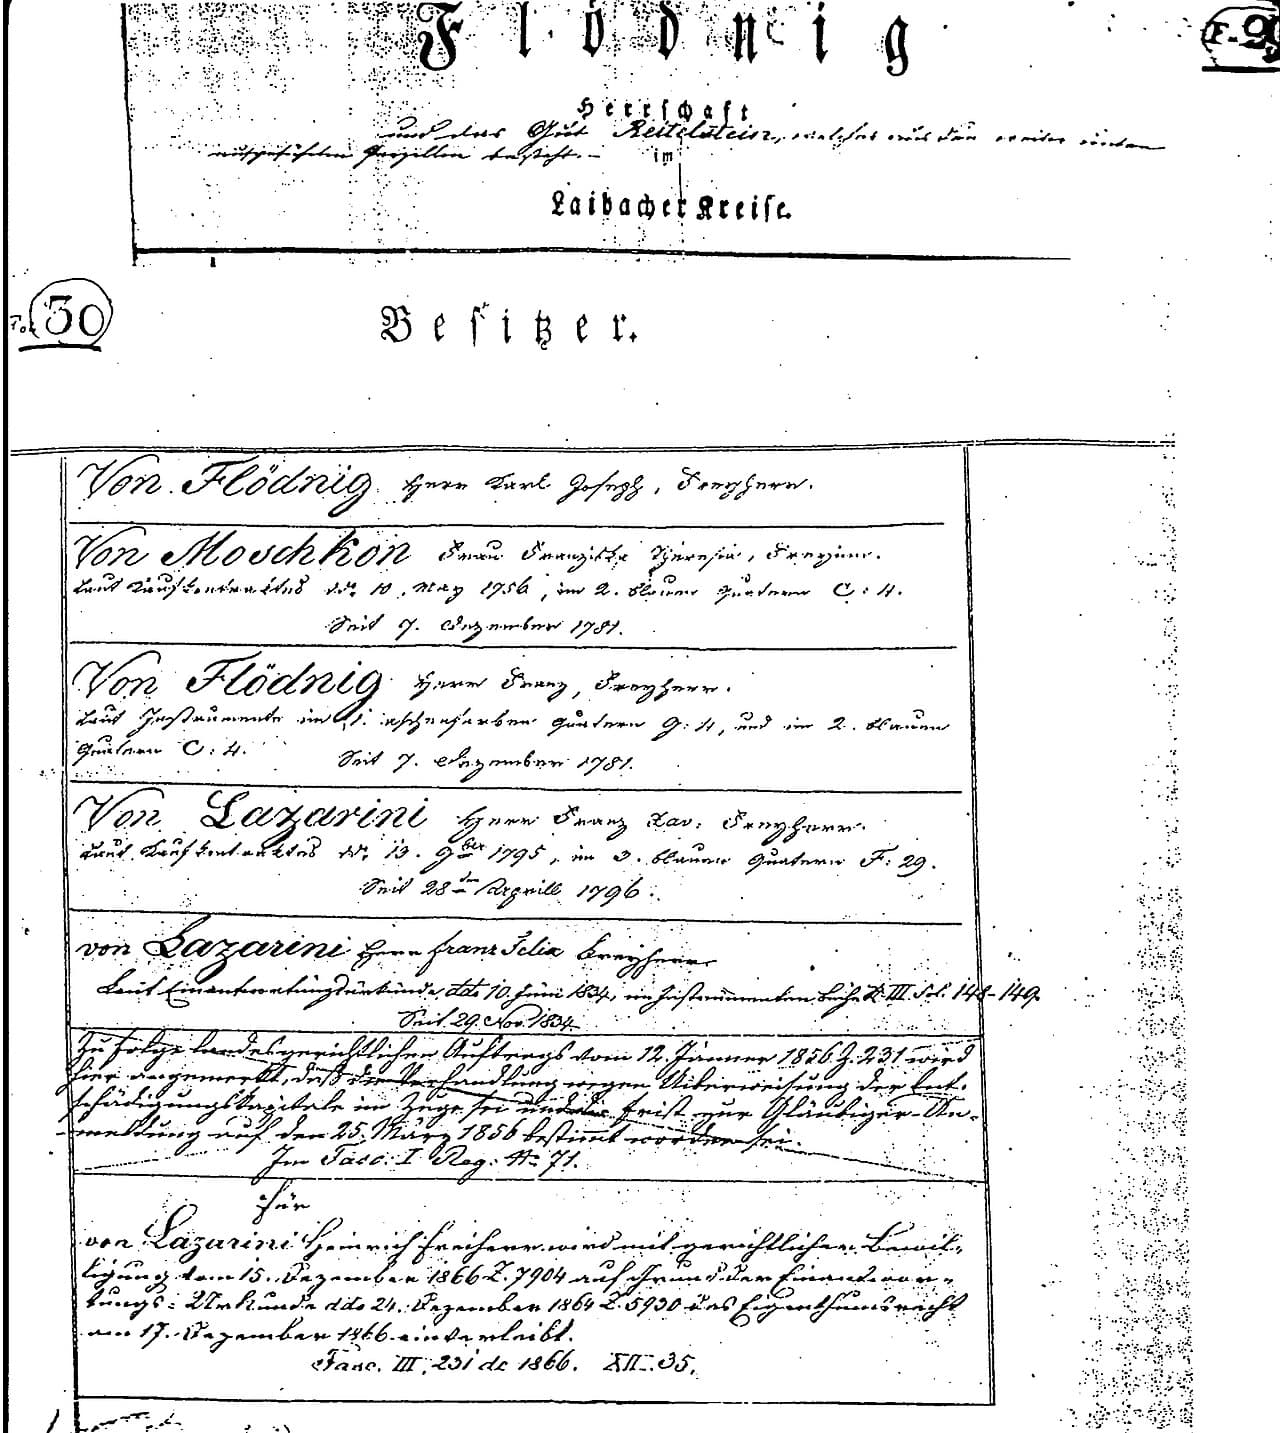 Flödnig
F. 29
Herrschaft
und das Gut Reitelstein, welches aus den weiter unten
aufgeführten Parzellen besteht.-
im
Laibacher Kreise.
Fol. 30
Besitzer.
Von Flödnig Herr Karl Joseph, Freyherr.
Von Moschkon Frau Franziska Theresia, Freyinn.
Laut Kaufkontraktes dd. 10. May 1756, im 2. blauen Quatern C: 4.
Seit 7. Dezember 1781.
Von Flödnig Herr Franz, Freyherr.
Laut Instrumente im 1. aschenfarben Quatern G: 4, und im 2. blauen
Quatern C: 4. Seit 7. Dezember 1781.
Von Lazarini Herr Franz Xav: Freyherr.
Laut Kaufkontraktes dd. 13. 9ber 1795, im 3. blauen Quatern F: 29.
Seit 28ten Aprill 1796.
von Lazarini Herr Franz Felix Freyherr
Laut Einantwortungsurkunde ddo 10. Juni 1834, im Instrumenten Buche III Fol. 148-149.
Seit 29. Nov. 1834
Zu Folge landesgerichtlichen Auftrags vom 12. Jänner 1856 Z. 231 wird
hier angemerkt, daß die Verhandlung wegen Überweisung der Ent-
schädigungskapitale im Zuge sei und die Frist zur Gläubiger-An-
meldung auf den 25. März 1856 bestimmt worden sei.
Im Fasc: I Reg: N: 71.
Für
von Lazarini Heinrich Freiherr wird mit gerichtlicher Bewil-
ligung vom 15. Dezember 1866 Z. 7904 auf Grund der Einantwor-
tungs-Urkunde ddo 24. Dezember 1864 Z. 5930 das Eigenthumsrecht
am 17. Dezember 1866 einverleibt.
Fasc. III, 231 de 1866. XII. 35.